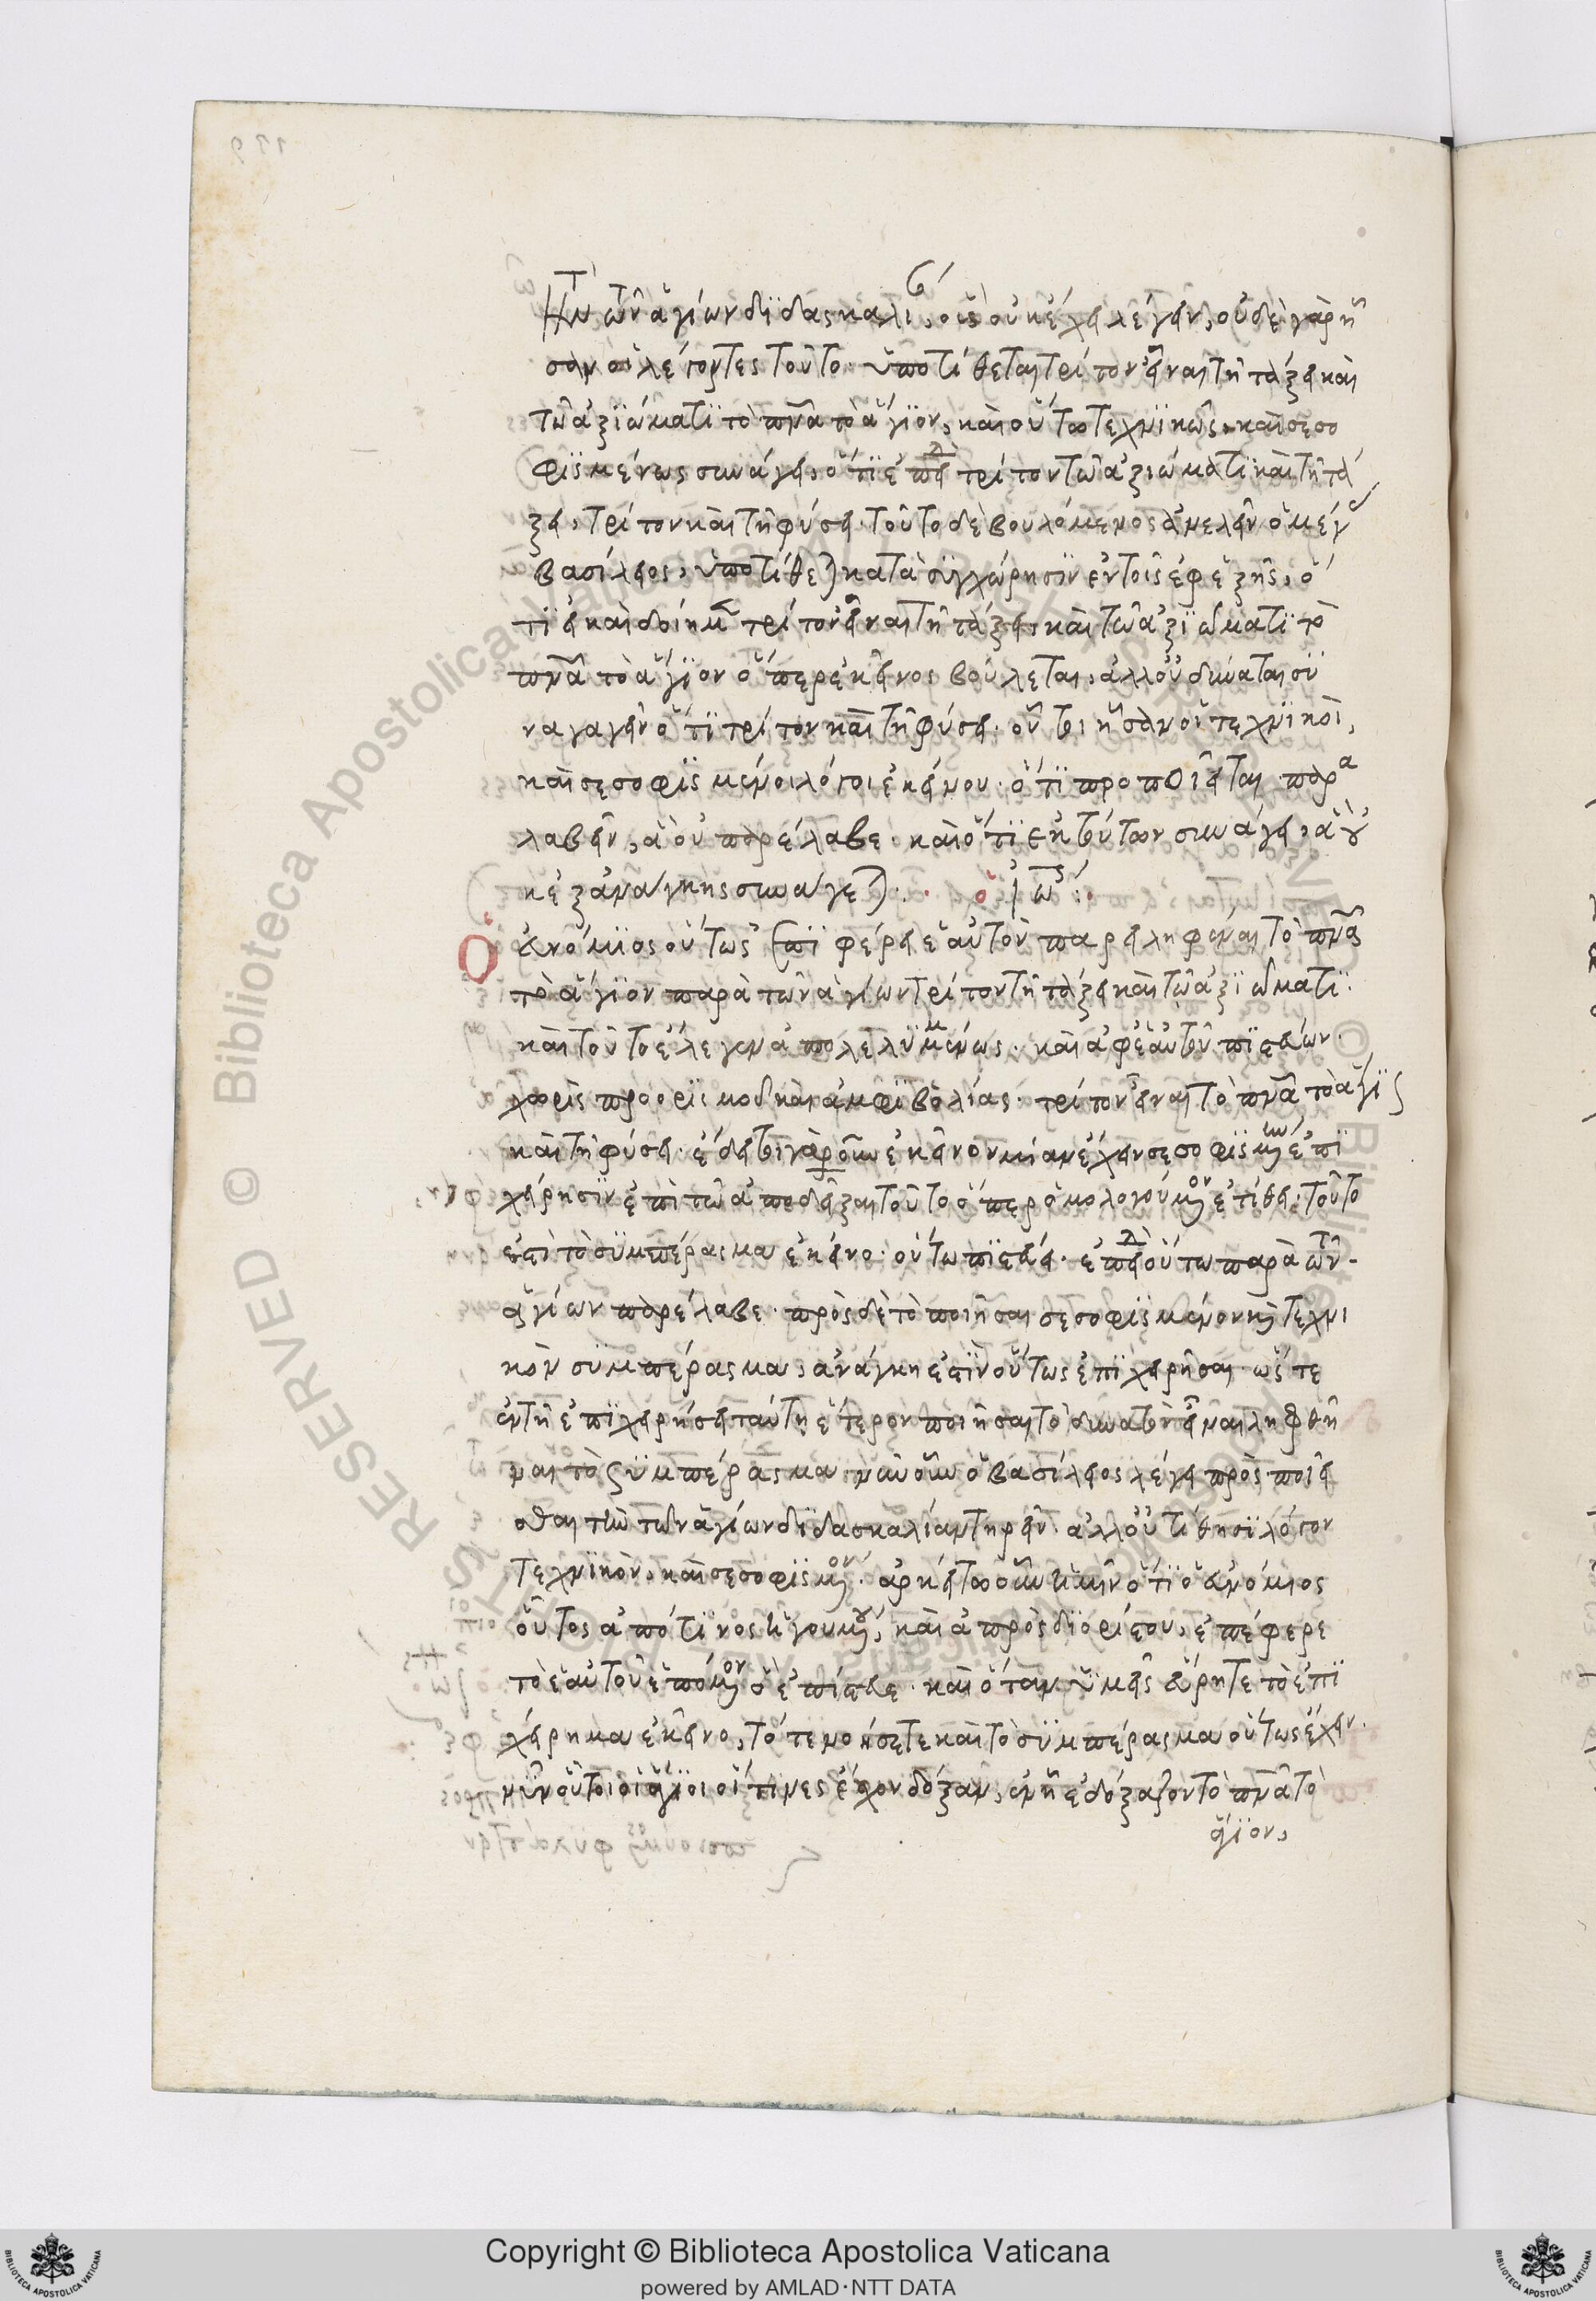 τὴν τῶν ἁγίων διδασκαλί, οἷς οὐκ ἔχει λέγειν, οὐδὲ γὰρ ἦ
σαν οἱ λέγοντες τοῦτο· ὑποτίθεται τρίτον εἶναι τῆ τάξει καὶ
τῶ ἀξιώματι τὸ πνα τὸ ἅγιον, καὶ οὕτω τεχνικῶς, καὶ σεσο
φισμένως συνάγει, ὅτι ἐπεὶ τρίτον τῶ ἀξιώματι καὶ τῆ τά
ξει, τρίτον καὶ τῆ φύσει· τοῦτο δὲ βουλόμενος ἀνελεῖν ὁ μέγ
βασίλειος, ὑποτίθεται κατὰ συγχώρησιν ἐν τοῖς ἐφεξῆς, ὅ
τι εἰ καὶ δοίημεν τρίτον εἶναι τῆ τάξει, καὶ τῶ ἀξιώματι τὸ
πνα τὸ ἅγιον ὅπερ ἐκεῖνος βούλεται, ἀλλ' οὐ δύναται συ
ναγαγεῖν ὅτι τρίτον καὶ τῆ φύσει· οὗτοι ἦσαν οἱ τεχνικοὶ,
καὶ σεσοφισμένοι λόγοι ἐκείνου· ὅτι προσποιεῖται παρα
λαβεῖν, ἃ οὐ παρέλαβε· καὶ ὅτι ἐκ τούτων συνάγει, ἃ οὐ
κ ἐξ ἀνάγκης συνάγεται·
Ὁ εὐνόμιος οὕτως ἐπιφέρει ἑαυτὸν παρειληφέναι τὸ πνα
τὸ ἅγιον παρὰ τῶν ἁγίων τρίτον τῆ τάξει καὶ τῶ ἀξιώματι·
καὶ τοῦτο ἔλεγεν ἀπολελυμένως· καὶ ἀφ' ἑαυτοῦ πιστῶν·
χωρὶς προσορισμοῦ καὶ ἀμφιβολίας· τρίτον εἶναι τὸ πνα τὸ ἅγι
καὶ τῆ φύσει· ἔδει τοιγαροῦν ἐκεῖνον μὴ ἂν ἔχειν σεσοφισμένην ἐπι
χείρησιν ἐπὶ τῶ ἀποδεῖξαι τοῦτο ὅπερ ὁμολογούμενον ἐτίθει· τοῦτο
ἐστὶ τὸ συμπέρασμα ἐκεῖνο· οὕτω πιστεύει· ἐπεὶ οὕτω παρὰ τῶν
ἁγίων παρέλαβε· πρὸς δὲ τὸ ποιῆσαι σεσοφισμένον καὶ τεχνι
κὸν συμπέρασμα, ἀνάγκη ἐστὶν οὕτως ἐπιχειρῆσαι ὥστε
ἐν τῆ ἐπιχειρήσει ταύτη ἕτερον ποιῆσαι τὸ δυνατὸν εἶναι ληφθῆ
ναι τὸ συμπέρασμα· νῦν οὖν ὁ βασίλειος λέγει προσποιεῖ
σθαι τὴν τῶν ἁγίων διδασκαλίαν τηρεῖν· ἀλλ' οὐ τίθησι λόγον
τεχνικὸν, καὶ σεσοφισμένον· ἀρκείτω οὖν ἡμῖν ὅτι ὁ εὐνόμιος
οὗτος ἀπό τινος ἡγουμένου, καὶ ἀπροσδιορίστου, ἐπέφερε
τὸ ἑαυτοῦ ἑπόμενον ὃ ἐπίστευε· καὶ ὅταν ὑμεῖς εὕρητε τὸ ἐπι
χείρημα ἐκεῖνο, τότε νοήσετε καὶ τὸ συμπέρασμα οὕτως ἔχειν·
νῦν οὗτοι οἱ ἅγιοι οἵτινες ἔχον δόξαν, ἐν ἧ ἐδόξαζον τὸ πνα τὸ
ἅγιον,
Copyright © Biblioteca Apostolica Vaticana
powered by AMLAD·NTT DATA